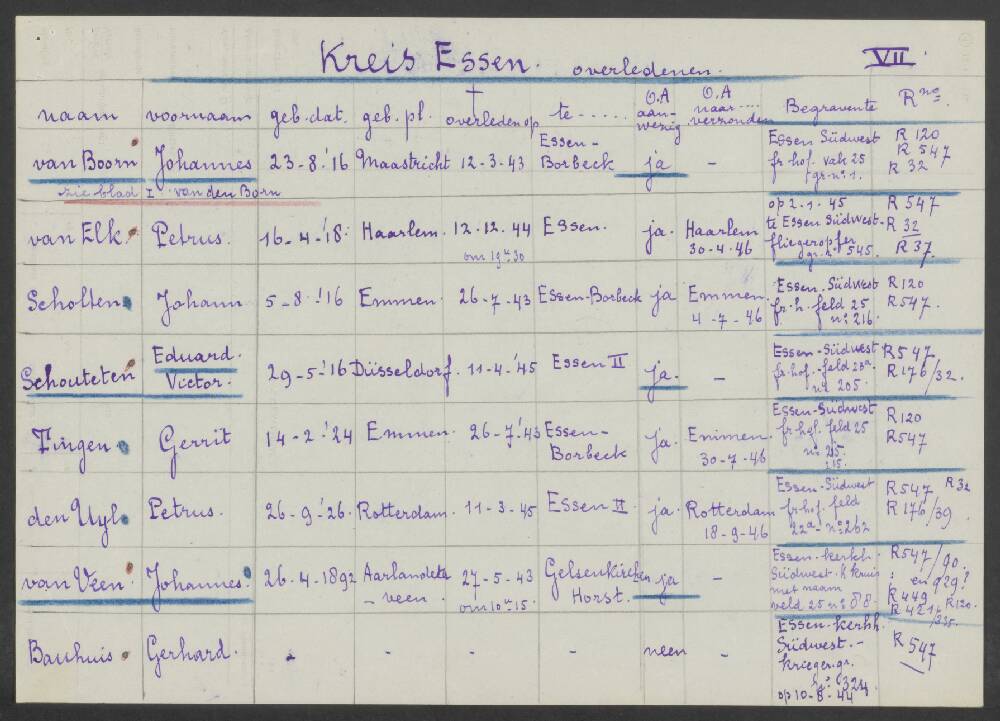 Kreis Essen. overledenen. VII
naam voornaam geb. dat. geb. pl. † overleden op te ...... O.A aanwezig O.A naar .... verzonden Begravente R nos.
van Boorn Johannes 23-8-'16 Maastricht 12-3-43 Essen-Borbeck ja - Essen Südwest fr. hof. vak 25 gr. no. 1. R 120 R 547 R 32
zie blad I van den Born
van Elk Petrus. 16-4-'18 Haarlem. 12-12-44 om 19 u 30 Essen. ja. Haarlem 30-4-46 op 2-1-45 te Essen Südwest- fliegeropfer gr. no 545. R 547 R 32 R 37.
Scholten Johann 5-8-'16 Emmen. 26-7-43 Essen-Borbeck ja Emmen. 4-7-46 Essen-Südwest fr. h. feld 25 no 216. R 120 R 547.
Schouteten Eduard. Victor. 29-5-'16 Düsseldorf. 11-4-'45 Essen II ja. - Essen-Südwest fr. hof. feld 23a. no 205. R 547 R 176/32.
Tingen Gerrit 14-2-'24 Emmen. 26-7-'43 Essen-Borbeck ja. Emmen 30-7-46 Essen-Südwest fr. hof. feld 25 no 215. 215. R 120 R 547
den Uyl Petrus. 26-9-'26. Rotterdam. 11-3-45 Essen II ja. Rotterdam 18-9-46 Essen-Südwest fr. hof. feld 22a- no 262 R 547 R 32 R 176/39
van Veen Johannes 26-4-1892 Aarlanderveen. 27-5-43 om 10 u 15. Gelsenkirchen Horst. ja - Essen-kerkh. Südwest. k. kruis met naam veld 25 no 88- R 547/90. en 929? R 449 R 421/335. R 120.
Bauhuis Gerhard. - - - - neen - Essen-kerkh. Südwest.- krieger. gr. no 324 op 10-8-44 R 547